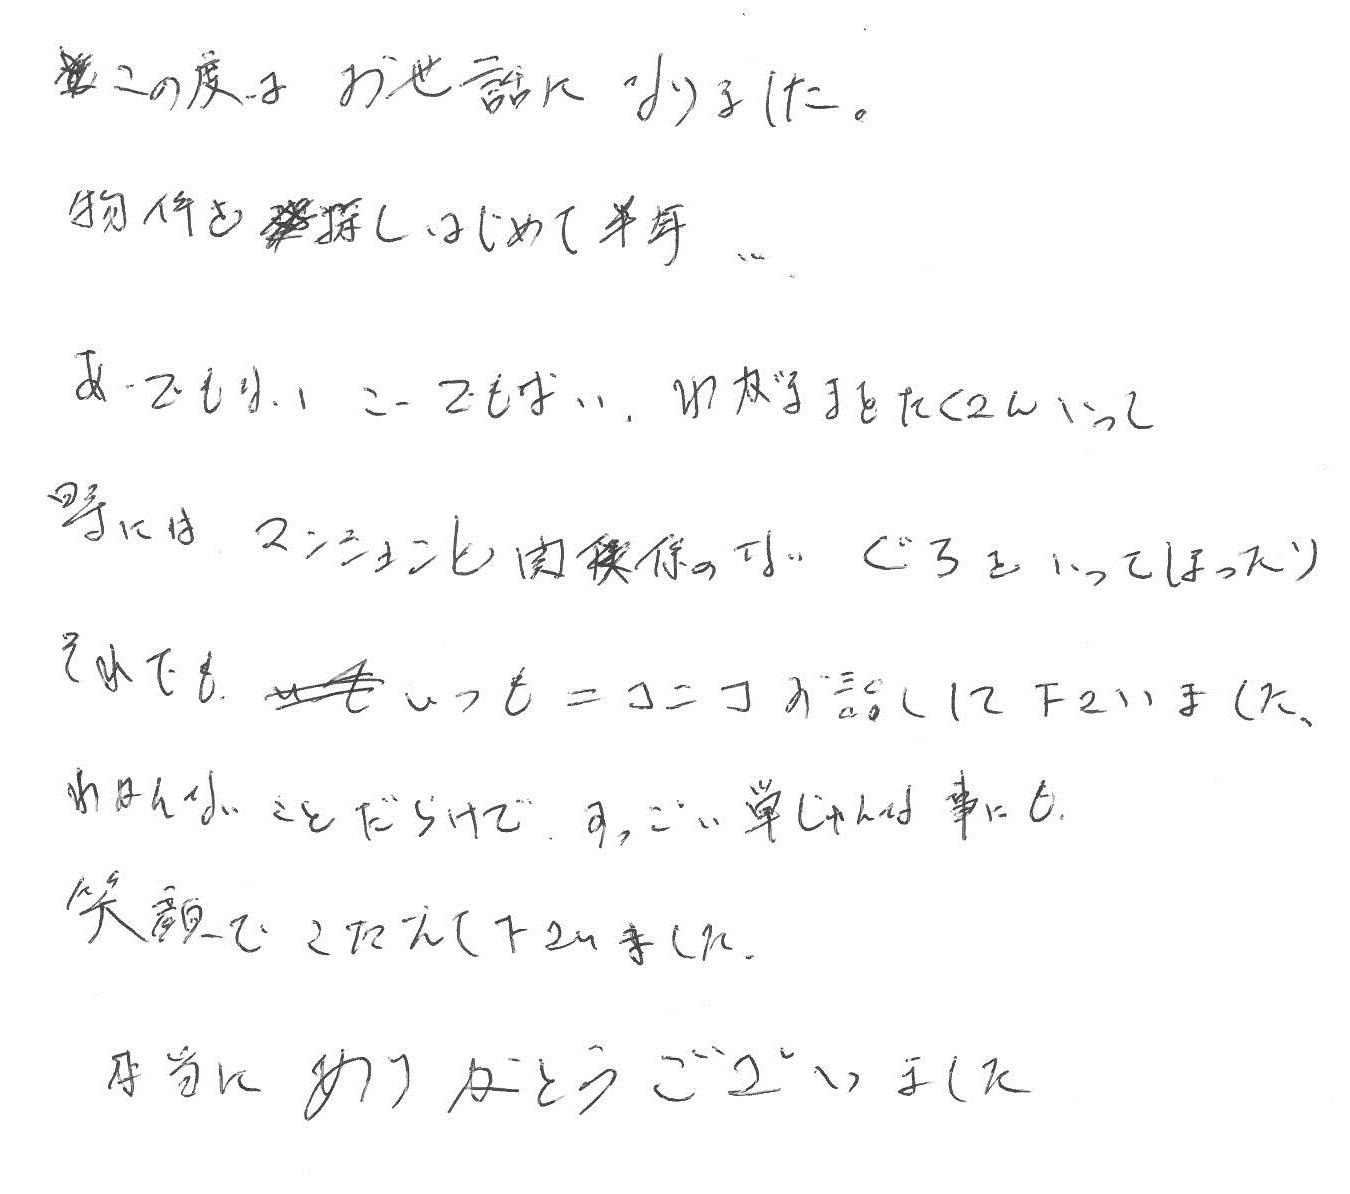 この度は お世話に なりました。
物件を 探しはじめて半年 …
あーでもない こーでもない、わがままをたくさんいって
時には マンションと関係のない ぐちをいってしまったり
それでも、いつもニコニコお話しして下さいました、
わかんないことだらけで、すっごい単じゅんな事にも、
笑顔でこたえて下さいました、
本当に ありがとうございました